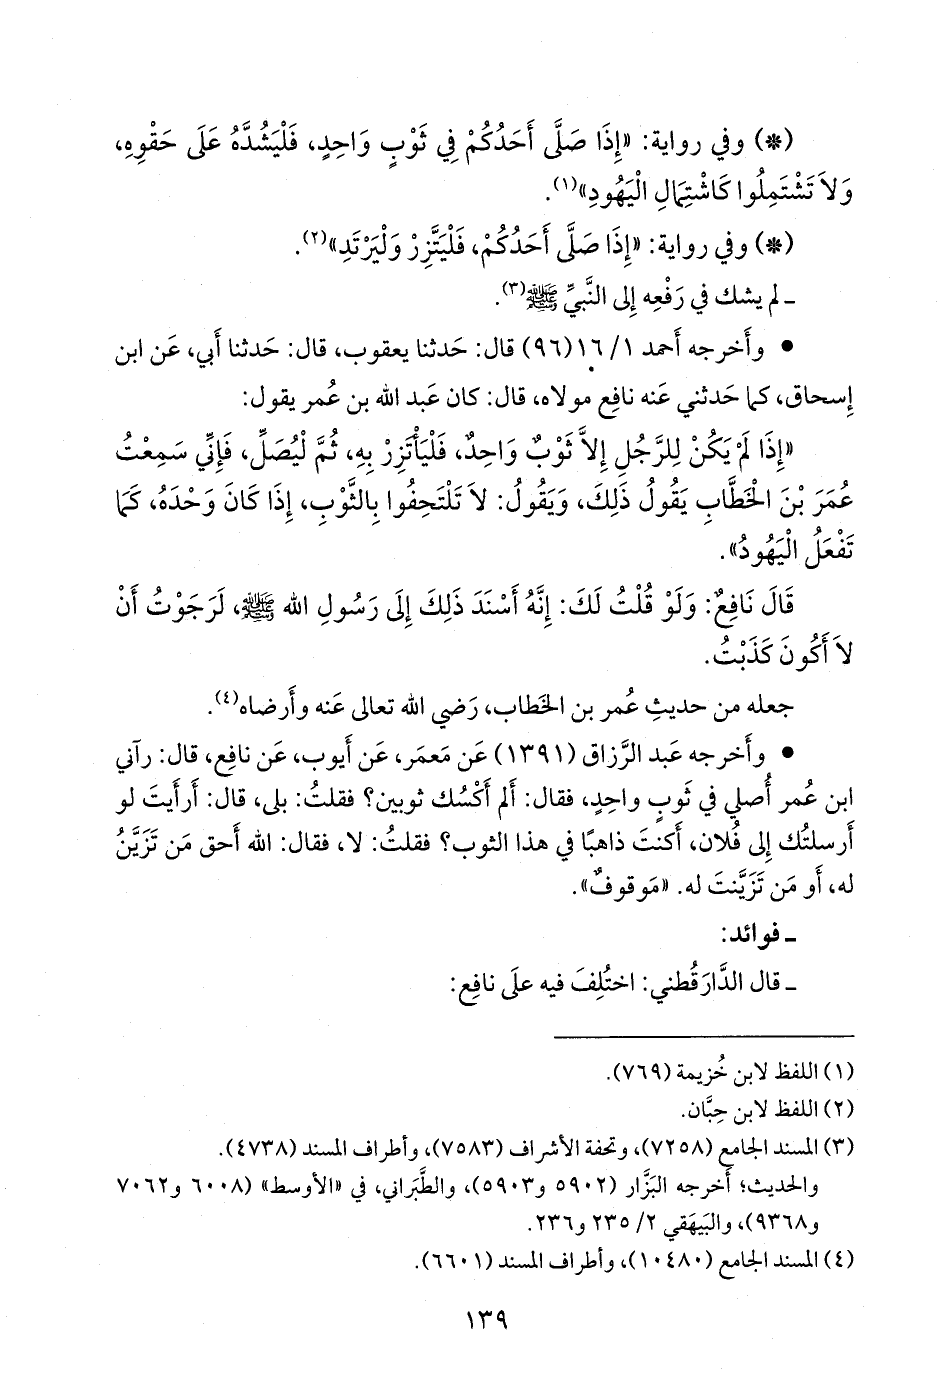 (*) وفي رواية: «إِذَا صَلَّى أَحَدُكُمْ فِي ثَوْبٍ وَاحِدٍ، فَلْيَشُدَّهُ عَلَى حَقْوِهِ،
وَلاَ تَشْتَمِلُوا كَاشْتِمَالِ الْيَهُودِ»(١).
(*) وفي رواية: «إِذَا صَلَّى أَحَدُكُمْ، فَلْيَتَّزِرْ وَلْيَرْتَدِ»(٢).
ـ لم يشك في رَفْعِه إلى النَّبيِّ ﷺ(٣).
• وأَخرجه أَحمد ١/ ١٦(٩٦) قال: حَدثنا يعقوب، قال: حَدثنا أَبي، عَن ابن
إِسحاق، كما حَدثني عنه نافِع مولاه، قال: كان عَبد الله بن عُمر يقول:
«إِذَا لَمْ يَكُنْ لِلرَّجُلِ إِلاَّ ثَوْبٌ وَاحِدٌ، فَلْيَأْتَزِرْ بِهِ، ثُمَّ لْيُصَلِّ، فَإِنِّي سَمِعْتُ
عُمَرَ بْنَ الْخَطَّابِ يَقُولُ ذَلِكَ، وَيَقُولُ: لاَ تَلْتَحِفُوا بِالثَّوْبِ، إِذَا كَانَ وَحْدَهُ، كَمَا
تَفْعَلُ الْيَهُودُ».
قَالَ نَافِعٌ: وَلَوْ قُلْتُ لَكَ: إِنَّهُ أَسْنَدَ ذَلِكَ إِلَى رَسُولِ الله ﷺ، لَرَجَوْتُ أَنْ
لاَ أَكُونَ كَذَبْتُ.
جعله من حديثِ عُمر بن الخَطاب، رَضي الله تعالى عَنه وأَرضاه(٤).
• وأَخرجه عَبد الرَّزاق (١٣٩١) عَن مَعمَر، عَن أَيوب، عَن نافِع، قال: رآني
ابن عُمر أُصلي في ثَوبٍ واحِدٍ، فقال: أَلم أَكْسُك ثوبين؟ فقلتُ: بلى، قال: أَرأَيتَ لو
أَرسلتُك إِلى فُلان، أَكنتَ ذاهبًا في هذا الثوب؟ فقلتُ: لا، فقال: الله أَحق مَن تَزَيَّنُ
له، أَو مَن تَزَيَّنتَ له. «مَوقوفٌ».
ـ فوائد:
ـ قال الدَّارَقُطني: اختُلِفَ فيه علَى نافِع:
(١) اللفظ لابن خُزيمة (٧٦٩).
(٢) اللفظ لابن حِبَّان.
(٣) المسند الجامع (٧٢٥٨)، وتحفة الأشراف (٧٥٨٣)، وأطراف المسند (٤٧٣٨).
والحديث؛ أَخرجه البَزَّار (٥٩٠٢ و٥٩٠٣)، والطَّبَراني، في «الأوسط» (٦٠٠٨ و٧٠٦٢
و٩٣٦٨)، والبَيهَقي ٢/ ٢٣٥ و٢٣٦.
(٤) المسند الجامع (١٠٤٨٠)، وأطراف المسند (٦٦٠١).
١٣٩